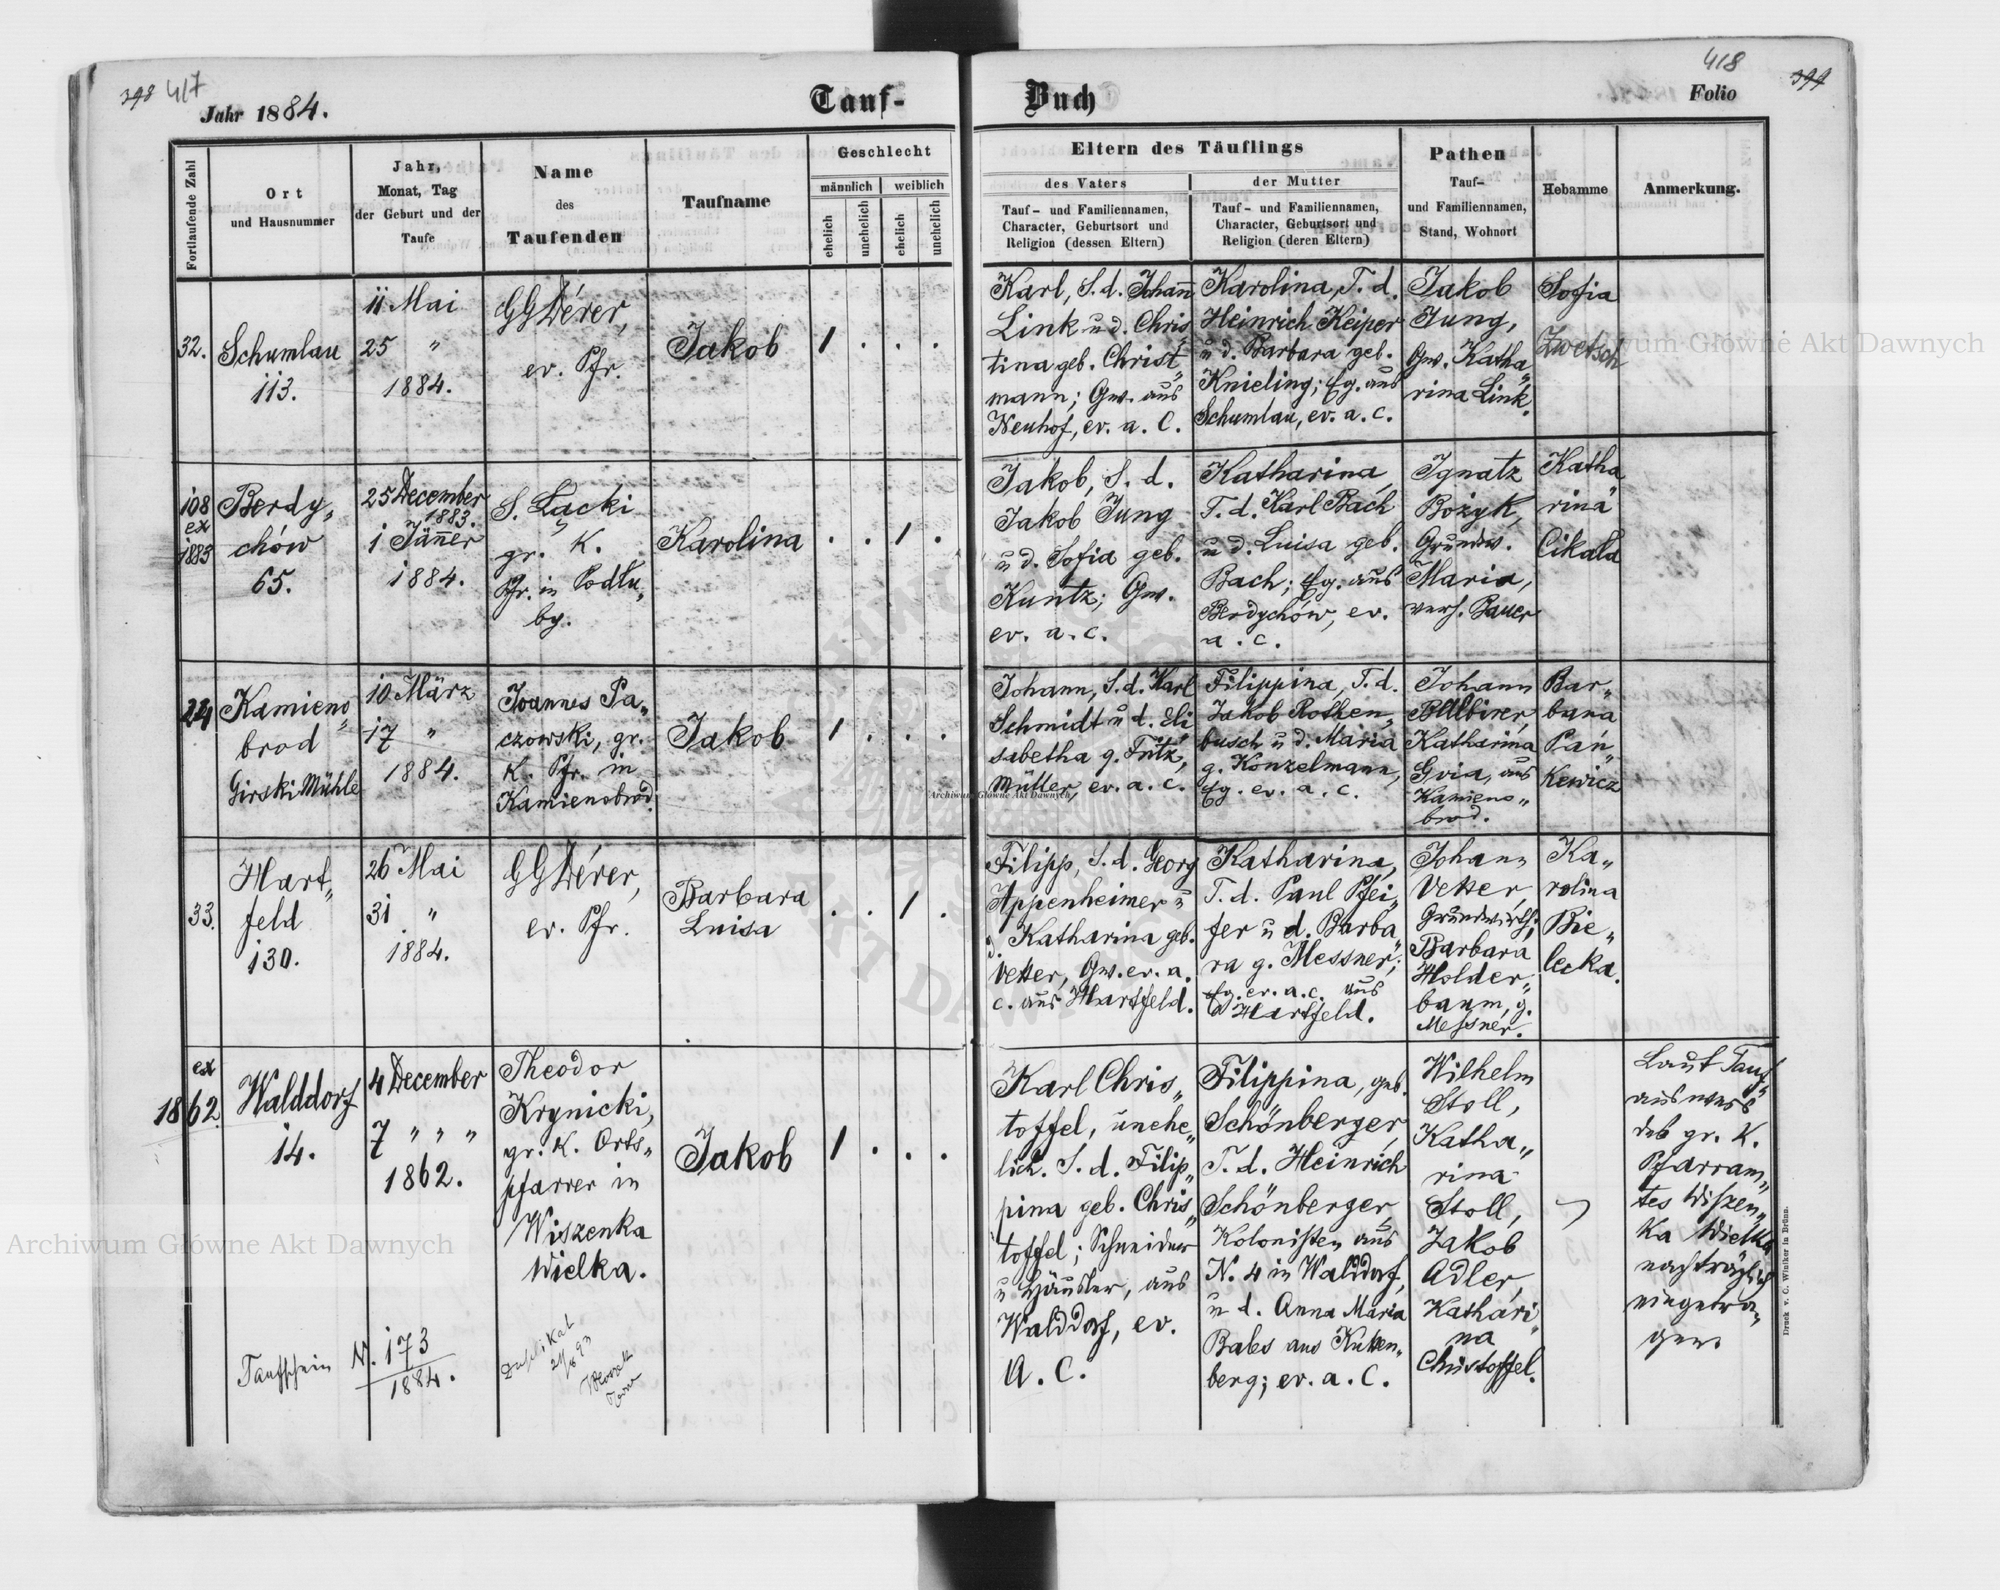 398 417
Jahr 1884.
Tauf-
Buch
418
Folio
399
Fortlaufende Zahl
Ort
und Hausnummer
Jahr,
Monat, Tag
der Geburt und der
Taufe
Name
des
Taufenden
Taufname
Geschlecht
männlich
weiblich
ehelich
unehelich
ehelich
unehelich
Eltern des Täuflings
des Vaters
der Mutter
Tauf- und Familiennamen,
Character, Geburtsort und
Religion (dessen Eltern)
Tauf- und Familiennamen,
Character, Geburtsort und
Religion (deren Eltern)
Pathen
Tauf-
und Familiennamen,
Stand, Wohnort
Hebamme
Anmerkung.
32.
Schumlau
113.
11 Mai
25 "
1884.
GGDérer,
ev. Pfr.
Jakob
1 . . .
Karl, S. d. Johann
Link u d. Chris
tina geb. Christ„
mann; Gw. aus
Neuhof, ev. a. C.
Karolina, T. d.
Heinrich Keiper
u d. Barbara geb.
Knieling; Eg. aus
Schumlau, ev. a. c.
Jakob
Jung,
Gw. Katha„
rina Link.
Sofia
Zwetsch
108
ex
1883
Berdy„
chów
65.
25 December
1883.
1 Jänner
1884.
S. Łacki
gr. K.
Pfr. in Podłu„
by.
Karolina
. . 1 .
Jakob, S. d.
Jakob Jung
u d. Sofia geb.
Kuntz; Gw.
ev. a. c.
Katharina,
T. d. Karl Bach
u d. Luisa geb.
Bach; Eg. aus
Berdychów, ev.
a. c.
Ignatz
Bożyk,
Grundw.
Maria,
verh. Bauer
Katha
rina
Cikała
24
Kamieno„
brod
Girski Mühle
10 März
17 "
1884.
Joannes Pa„
czowski, gr.
K. Pfr. in
Kamienobrod.
Jakob
1 . . .
Johann, S. d. Karl
Schmidt u d. Eli
sabetha g. Fritz,
Müller, ev. a. c.
Filippina, T. d.
Jakob Rothen„
busch u d. Maria
g. Konzelmann,
Eg. ev. a. c.
Johann
Balbirer,
Katharina
Gvia, aus
Kamieno„
brod.
Bar„
bara
Pan„
kewicz
33.
Hart„
feld
130.
26 Mai
31 "
1884.
GGDérer,
ev. Pfr.
Barbara
Luisa
. . 1 .
Filipp, S. d. Georg
Appenheimer u
d. Katharina geb.
Vetter, Gw. ev. a.
c. aus Hartfeld.
Katharina,
T. d. Paul Pfei„
fer u d. Barba„
ra g. Messner;
Eg. ev. a. c. aus
Hartfeld.
Johann
Vetter,
Grundwirth;
Barbara
Holder„
baum, g.
Messner.
Ka„
rolina
Bie„
lecka.
ex
1862
Walddorf
14.
4 December
7 " " "
1862.
Theodor
Krynicki,
gr. K. Orts„
pfarrer in
Wiszenka
Wielka.
Jakob
1 . . .
Karl Chris„
toffel, unehe„
lich. S. d. Filip„
pina geb. Chris„
toffel; Schneider
u Häusler, aus
Walddorf, ev.
A. C.
Filippina, geb.
Schönberger,
T. d. Heinrich
Schönberger,
Kolonisten aus
N. 4 in Walddorf,
u d. Anna Maria
Babes aus Kutten„
berg; ev. a. C.
Wilhelm
Stoll,
Katha„
rina
Stoll,
Jakob
Adler,
Kathari„
na
Christoffel.
Laut Tauf„
ausweis
des gr. K.
Pfarram„
tes Wiszen„
ka Wielka
nachträglich
eingetra„
gen.
Taufschein N. 173
1884.
Duplikat
Druck v. C. Winiker in Brünn.
Archiwum Główne Akt Dawnych
Archiwum Główne Akt Dawnych
Archiwum Główne Akt Dawnych